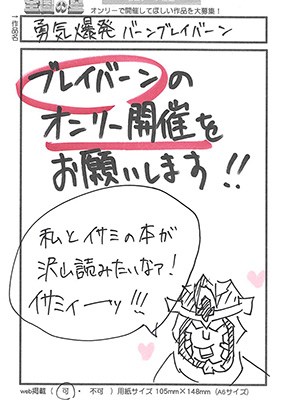 オンリーで開催してほしい作品を大募集！
作品名
勇気爆発 バーンブレイバーン
ブレイバーンの
オンリー開催を
お願いします!!
私とイサミの本が
沢山読みたいなァ!
イサミィーーッ!!!
web掲載（ 可 ・ 不可 ）用紙サイズ 105mm×148mm（A6サイズ）